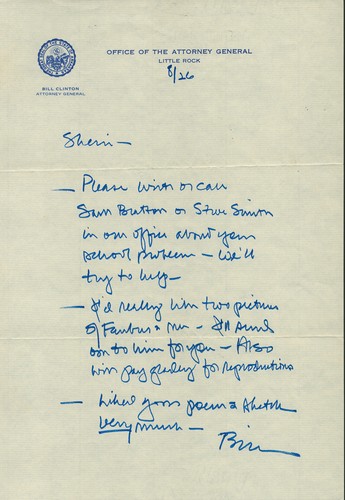 OFFICE OF THE ATTORNEY GENERAL
LITTLE ROCK
8/26
BILL CLINTON
ATTORNEY GENERAL
Sherri —
— Please write or call
Sam Bratton or Steve Smith
in our office about your
school problem — We'll
try to help —
— I'd really like two pictures
of Faubus & me — I'll send
one to him for you — Also
will pay gladly for reproductions
— Liked your poem & sketch
very much —
Bill